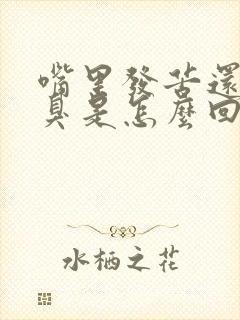 嘴里發苦還
臭是怎麼回
水栖之花